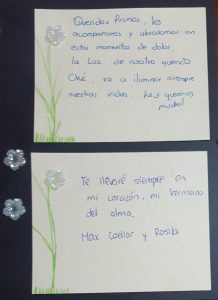 Queridos Primos, les
acompañamos y abrazamos en
estos momentos de dolor,
la Luz de nuestro querido
Oké, va a iluminar siempre
nuestras vidas. Les queremos
mucho!
Te llevaré siempre en
mi corazón, mi hermano
del alma.
Max Coellar y Rosita